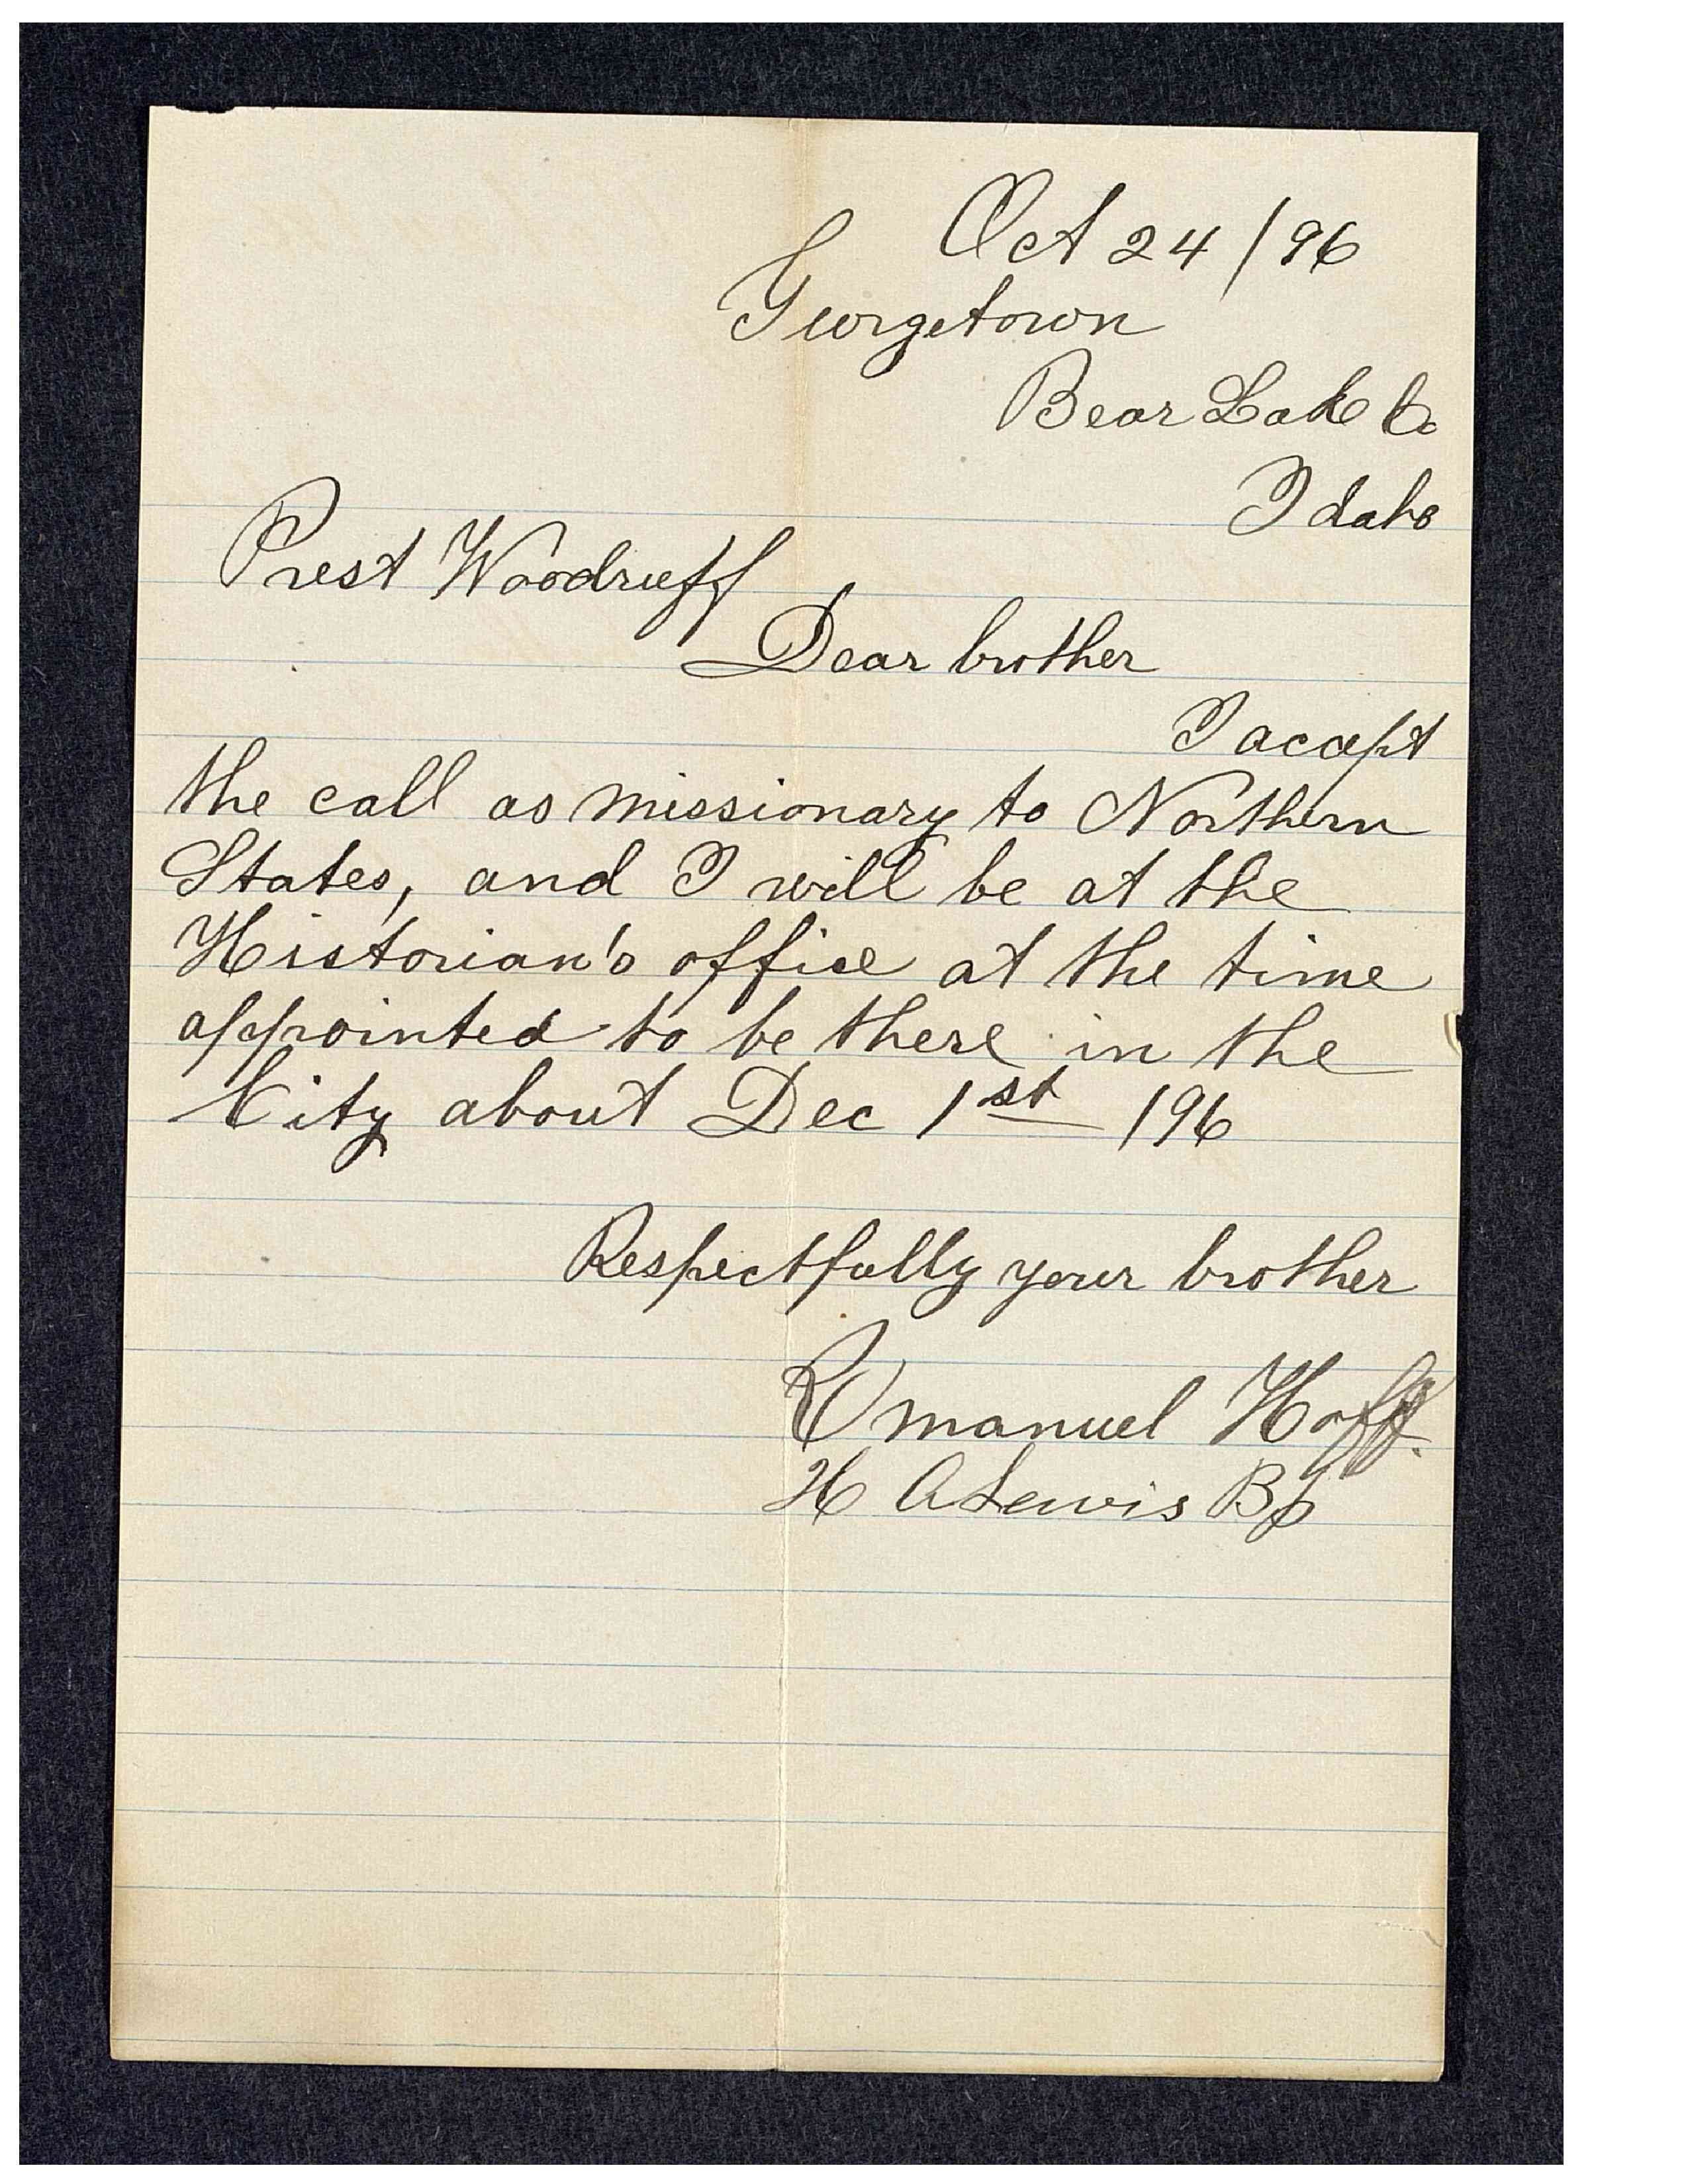 Oct 24/96
Georgetown
Bear Lake Co
Idaho
Prest Woodruff
Dear brother
I accept
the call as missionary to Northern
States, and I will be at the
Historian's office at the time
appointed to be there in the
City about Dec 1st /96
Respectfully your brother
Emanuel Hoff.
H A Lewis Bp